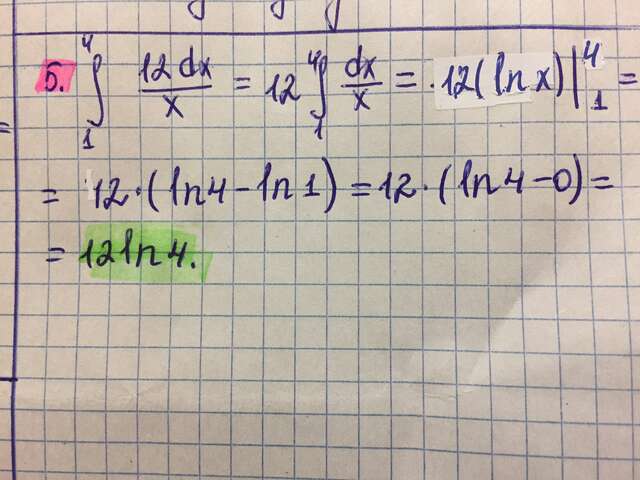 5. ∫₁⁴ 12dx/x = 12 ∫₁⁴ dx/x = 12(ln x)|₁⁴ =
= 12·(ln4 – ln1) = 12·(ln4 – 0) =
= 12ln4.